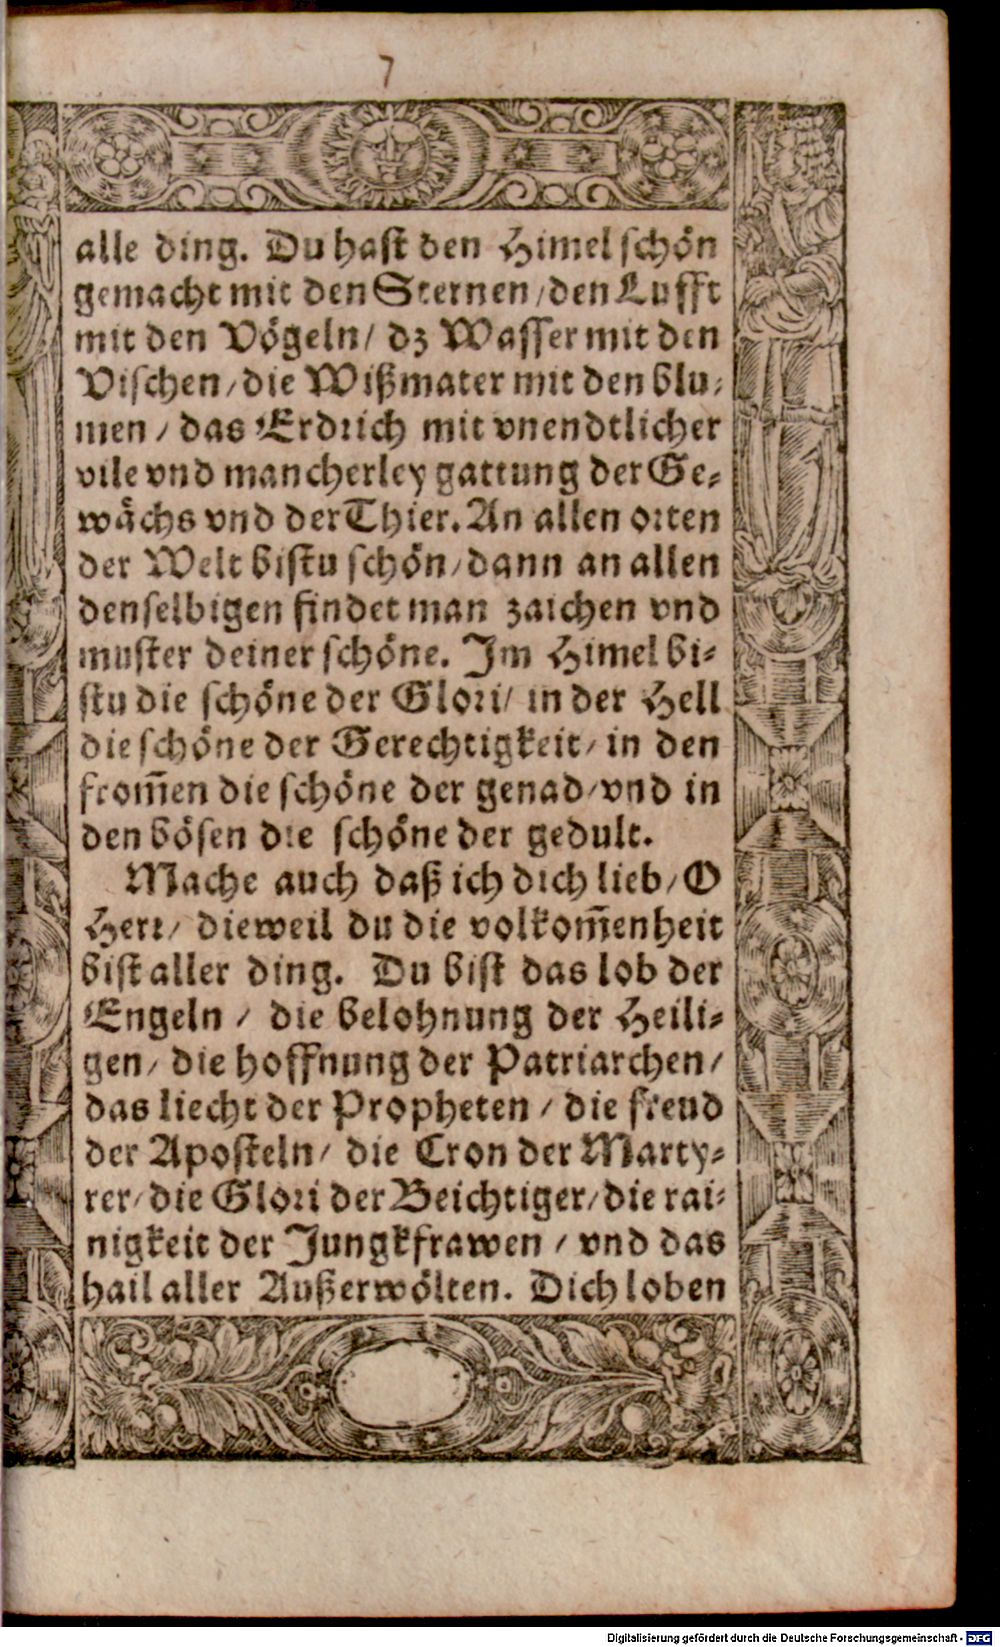 7
alle ding. Du hast den Himel schön
gemacht mit den Sternen / den Lufft
mit den Vögeln / dz Wasser mit den
Vischen / die Wißmater mit den blu⸗
men / das Erdrich mit vnendtlicher
vile vnd mancherley gattung der Ge⸗
wächs vnd der Thier. An allen orten
der Welt bistu schön / dann an allen
denselbigen findet man zaichen vnd
muster deiner schöne. Im Himel bi⸗
stu die schöne der Glori / in der Hell
die schöne der Gerechtigkeit / in den
from̃en die schöne der genad / vnd in
den bösen die schöne der gedult.
Mache auch daß ich dich lieb / O
Herr / dieweil du die volkom̃enheit
bist aller ding. Du bist das lob der
Engeln / die belohnung der Heili⸗
gen / die hoffnung der Patriarchen /
das liecht der Propheten / die freud
der Aposteln / die Cron der Marty⸗
rer / die Glori der Beichtiger / die rai⸗
nigkeit der Jungkfrawen / vnd das
hail aller Außerwölten. Dich loben
Digitalisierung gefördert durch die Deutsche Forschungsgemeinschaft - DFG